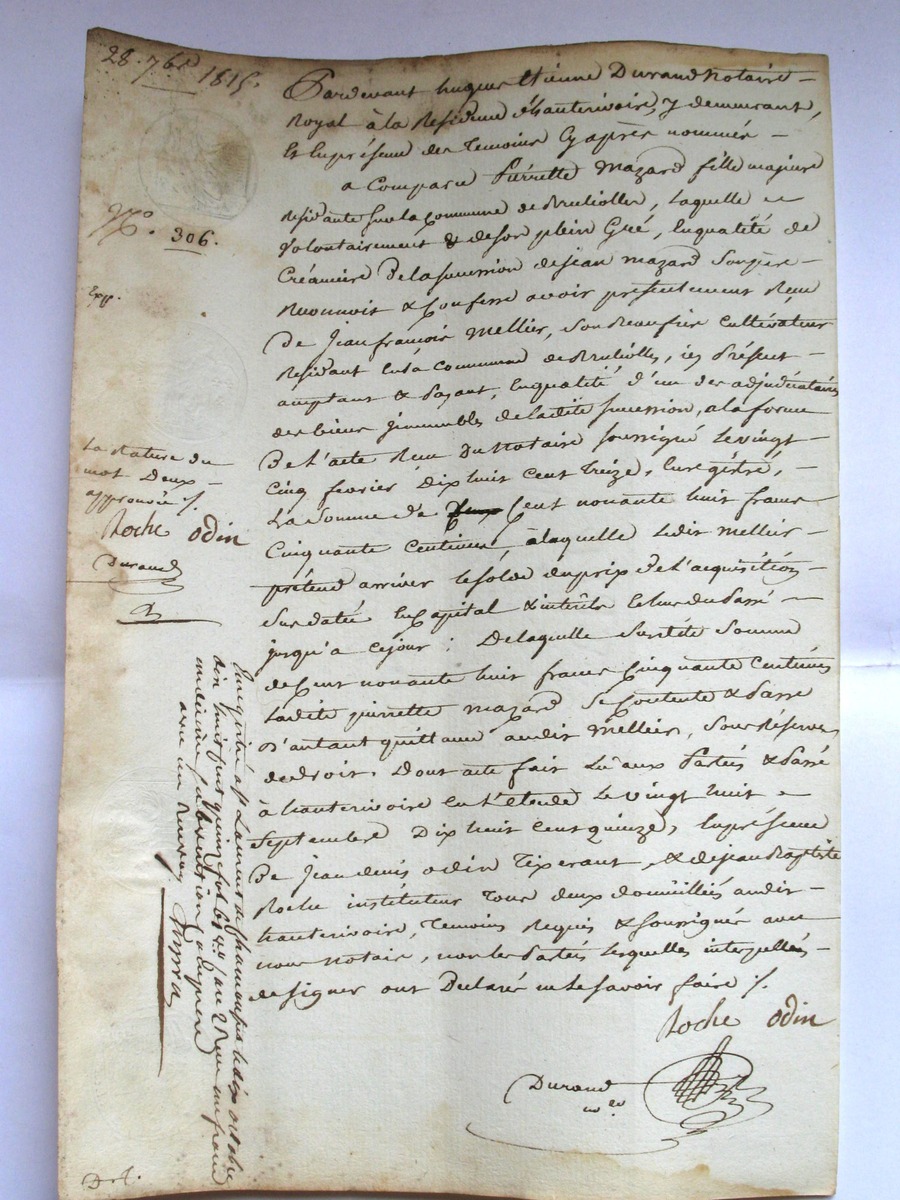 28. 7bre 1815.
N.o 306.
Exp.
Pardevant hugues Etienne Durand Notaire
Royal à la Residence d'hauterivoire, y demeurant,
En présence des Temoins cy après nommés
a Comparu Pierrette Mazard fille majeure
Residante sur la Commune de Brulioles, Laquelle
Volontairement & de son plein Gré, En qualité de
Créanciere De la succession de jean mazard son père
Reconnoit & Confesse avoir présentement Reçu
De jean françois Mellier, son Beaufrere Cultivateur
Residant En la Commune de Brulioles, icy Présent
acceptant & Payant, En qualité d'un des adjudicataires
des biens jmmeubles de ladite succession, a la forme
De L'acte Reçu Du Notaire soussigné Le vingt
Cinq fevrier Dix huit Cent Treize, Enregistré,
La Somme de Cent nonante huit francs
Cinquante Centimes, à laquelle Ledit Mellier
prétend arriver le solde du prix De L'acquisition
Sus datée En Capital & intérêts
jusqu'a ce jour ; De laquelle Susdite Somme
de Cent nonante huit francs Cinquante Centimes
Ladite pierrette Mazard Se Contente & Passe
D'autant quittance audit Mellier, Sous Réserves
de droit. Dont acte fait Lu aux Parties & Passé
à hauterivoire En L'etude Le vingt huit
Septembre Dix huit Cent quinze, En présence
De jean denis odin Tixerant, & de jean Baptiste
Roche instituteur Tous deux domiciliés audit
hauterivoire, Temoins Requis & soussignés avec
nous Notaire, non les Parties Lesquelles interpellées
de signer ont Déclarés ne Le savoir faire ./.
Roche odin
Durand
La Rature du
mot Deux
approuvée ./.
Roche odin
Durand
Enregistré à St Laurent de chamousset le dix octobre
dix huit cent quinze fol. 68 Reçu un franc
un décime subvention comprise